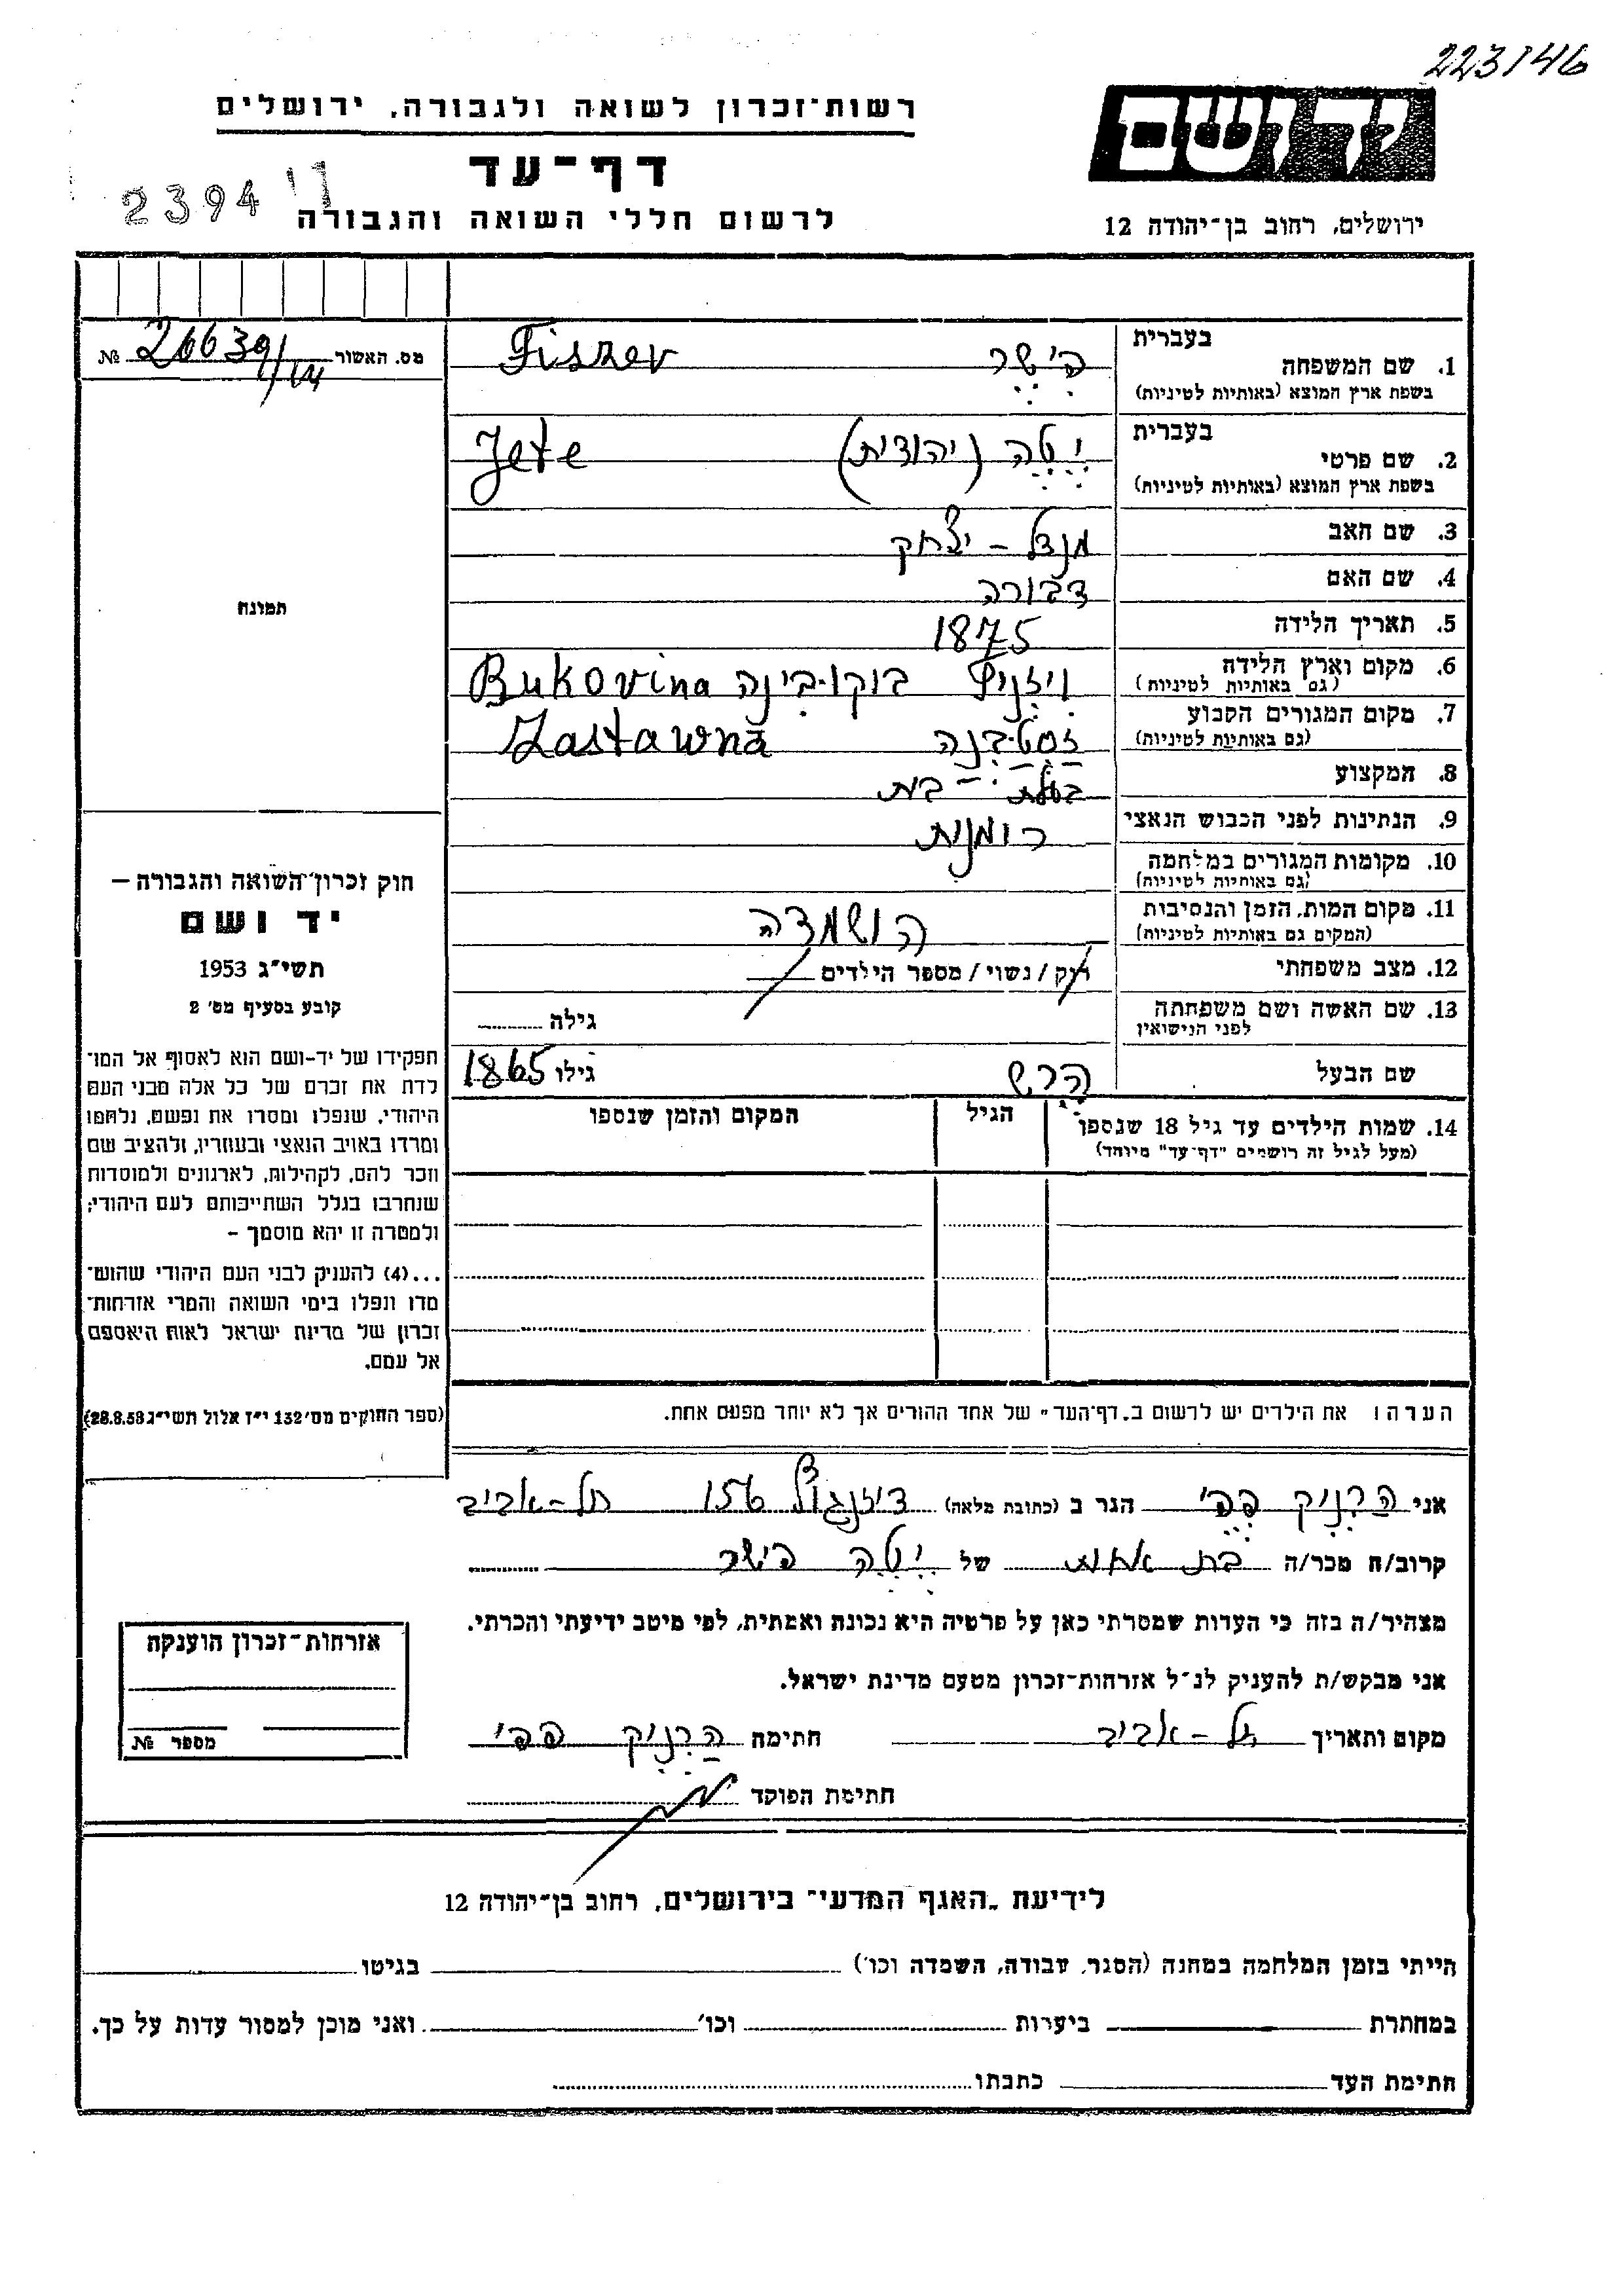 223/46
רשות־זכרון לשואה ולגבורה, ירושלים
ידושם
דף־עד
2394
לרשום חללי השואה והגבורה
ירושלים, רחוב בן־יהודה 12
מס. האשור 26639/ №
תמונה
חוק זכרון־השואה והגבורה —
יד ושם
תשי״ג 1953
קובע בסעיף מס׳ 2
תפקידו של יד-ושם הוא לאסוף אל המו־
לדת את זכרם של כל אלה מבני העם
היהודי, שנפלו ומסרו את נפשם, נלחמו
ומרדו באויב הנאצי ובעוזריו, ולהציב שם
וזכר להם, לקהילות, לארגונים ולמוסדות
שנחרבו בגלל השתייכותם לעם היהודי;
ולמטרה זו יהא מוסמך –
...(4) להעניק לבני העם היהודי שהוש־
מדו ונפלו בימי השואה והמרי אזרחות־
זכרון של מדינת ישראל לאות היאספם
אל עמם.
(ספר החוקים מס׳ 132 י״ז אלול תשי״ג 28.8.53)
בעברית
1. שם המשפחה פישר Fiszer
בשפת ארץ המוצא (באותיות לטיניות)
בעברית
2. שם פרטי יטה (יהודית) Jete
בשפת ארץ המוצא (באותיות לטיניות)
3. שם האב מנדל - יצחק
4. שם האם דבורה
5. תאריך הלידה 1875
6. מקום וארץ הלידה ויזניץ בוקובינה Bukovina
(גם באותיות לטיניות)
7. מקום המגורים הקבוע זסטבנה Zastawna
(גם באותיות לטיניות)
8. המקצוע בעלת - בית
9. הנתינות לפני הכבוש הנאצי רומנית
10. מקומות המגורים במלחמה
(גם באותיות לטיניות)
11. מקום המות, הזמן והנסיבות הושמדה
(המקום גם באותיות לטיניות)
12. מצב משפחתי רוק / נשוי / מספר הילדים
13. שם האשה ושם משפחתה גילה
לפני הנישואין
שם הבעל הרש גילו 1865
14. שמות הילדים עד גיל 18 שנספו הגיל המקום והזמן שנספו
(מעל לגיל זה רושמים "דף-עד" מיוחד)
הערה: את הילדים יש לרשום ב„דף־העד״ של אחד ההורים אך לא יותר מפעם אחת.
אני הרניק פפי הגר ב (כתובת מלאה) דיזנגוף 156 תל-אביב
קרוב/ה מכר/ה בת אחות של יטה פישר
מצהיר/ה בזה כי העדות שמסרתי כאן על פרטיה היא נכונה ואמתית, לפי מיטב ידיעתי והכרתי.
אני מבקש/ת להעניק לנ״ל אזרחות־זכרון מטעם מדינת ישראל.
מקום ותאריך תל-אביב חתימה הרניק פפי
חתימת הפוקד
אזרחות־זכרון הוענקה
מספר №
לידיעת „האגף המדעי״ בירושלים, רחוב בן־יהודה 12
הייתי בזמן המלחמה במחנה (הסגר, עבודה, השמדה וכו׳) בגיטו
במחתרת ביערות וכו׳ ואני מוכן למסור עדות על כך.
חתימת העד כתבתו